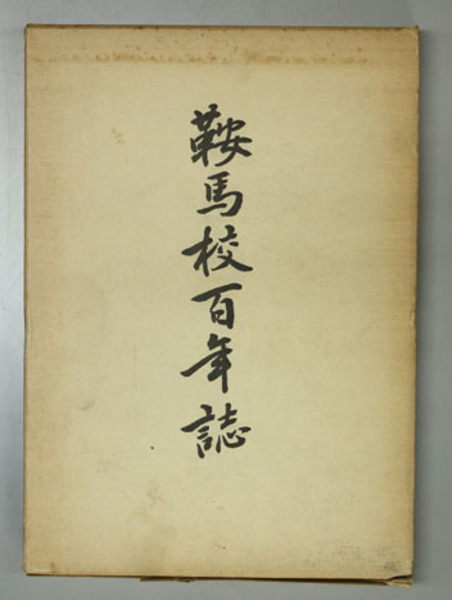 鞍馬校百年誌